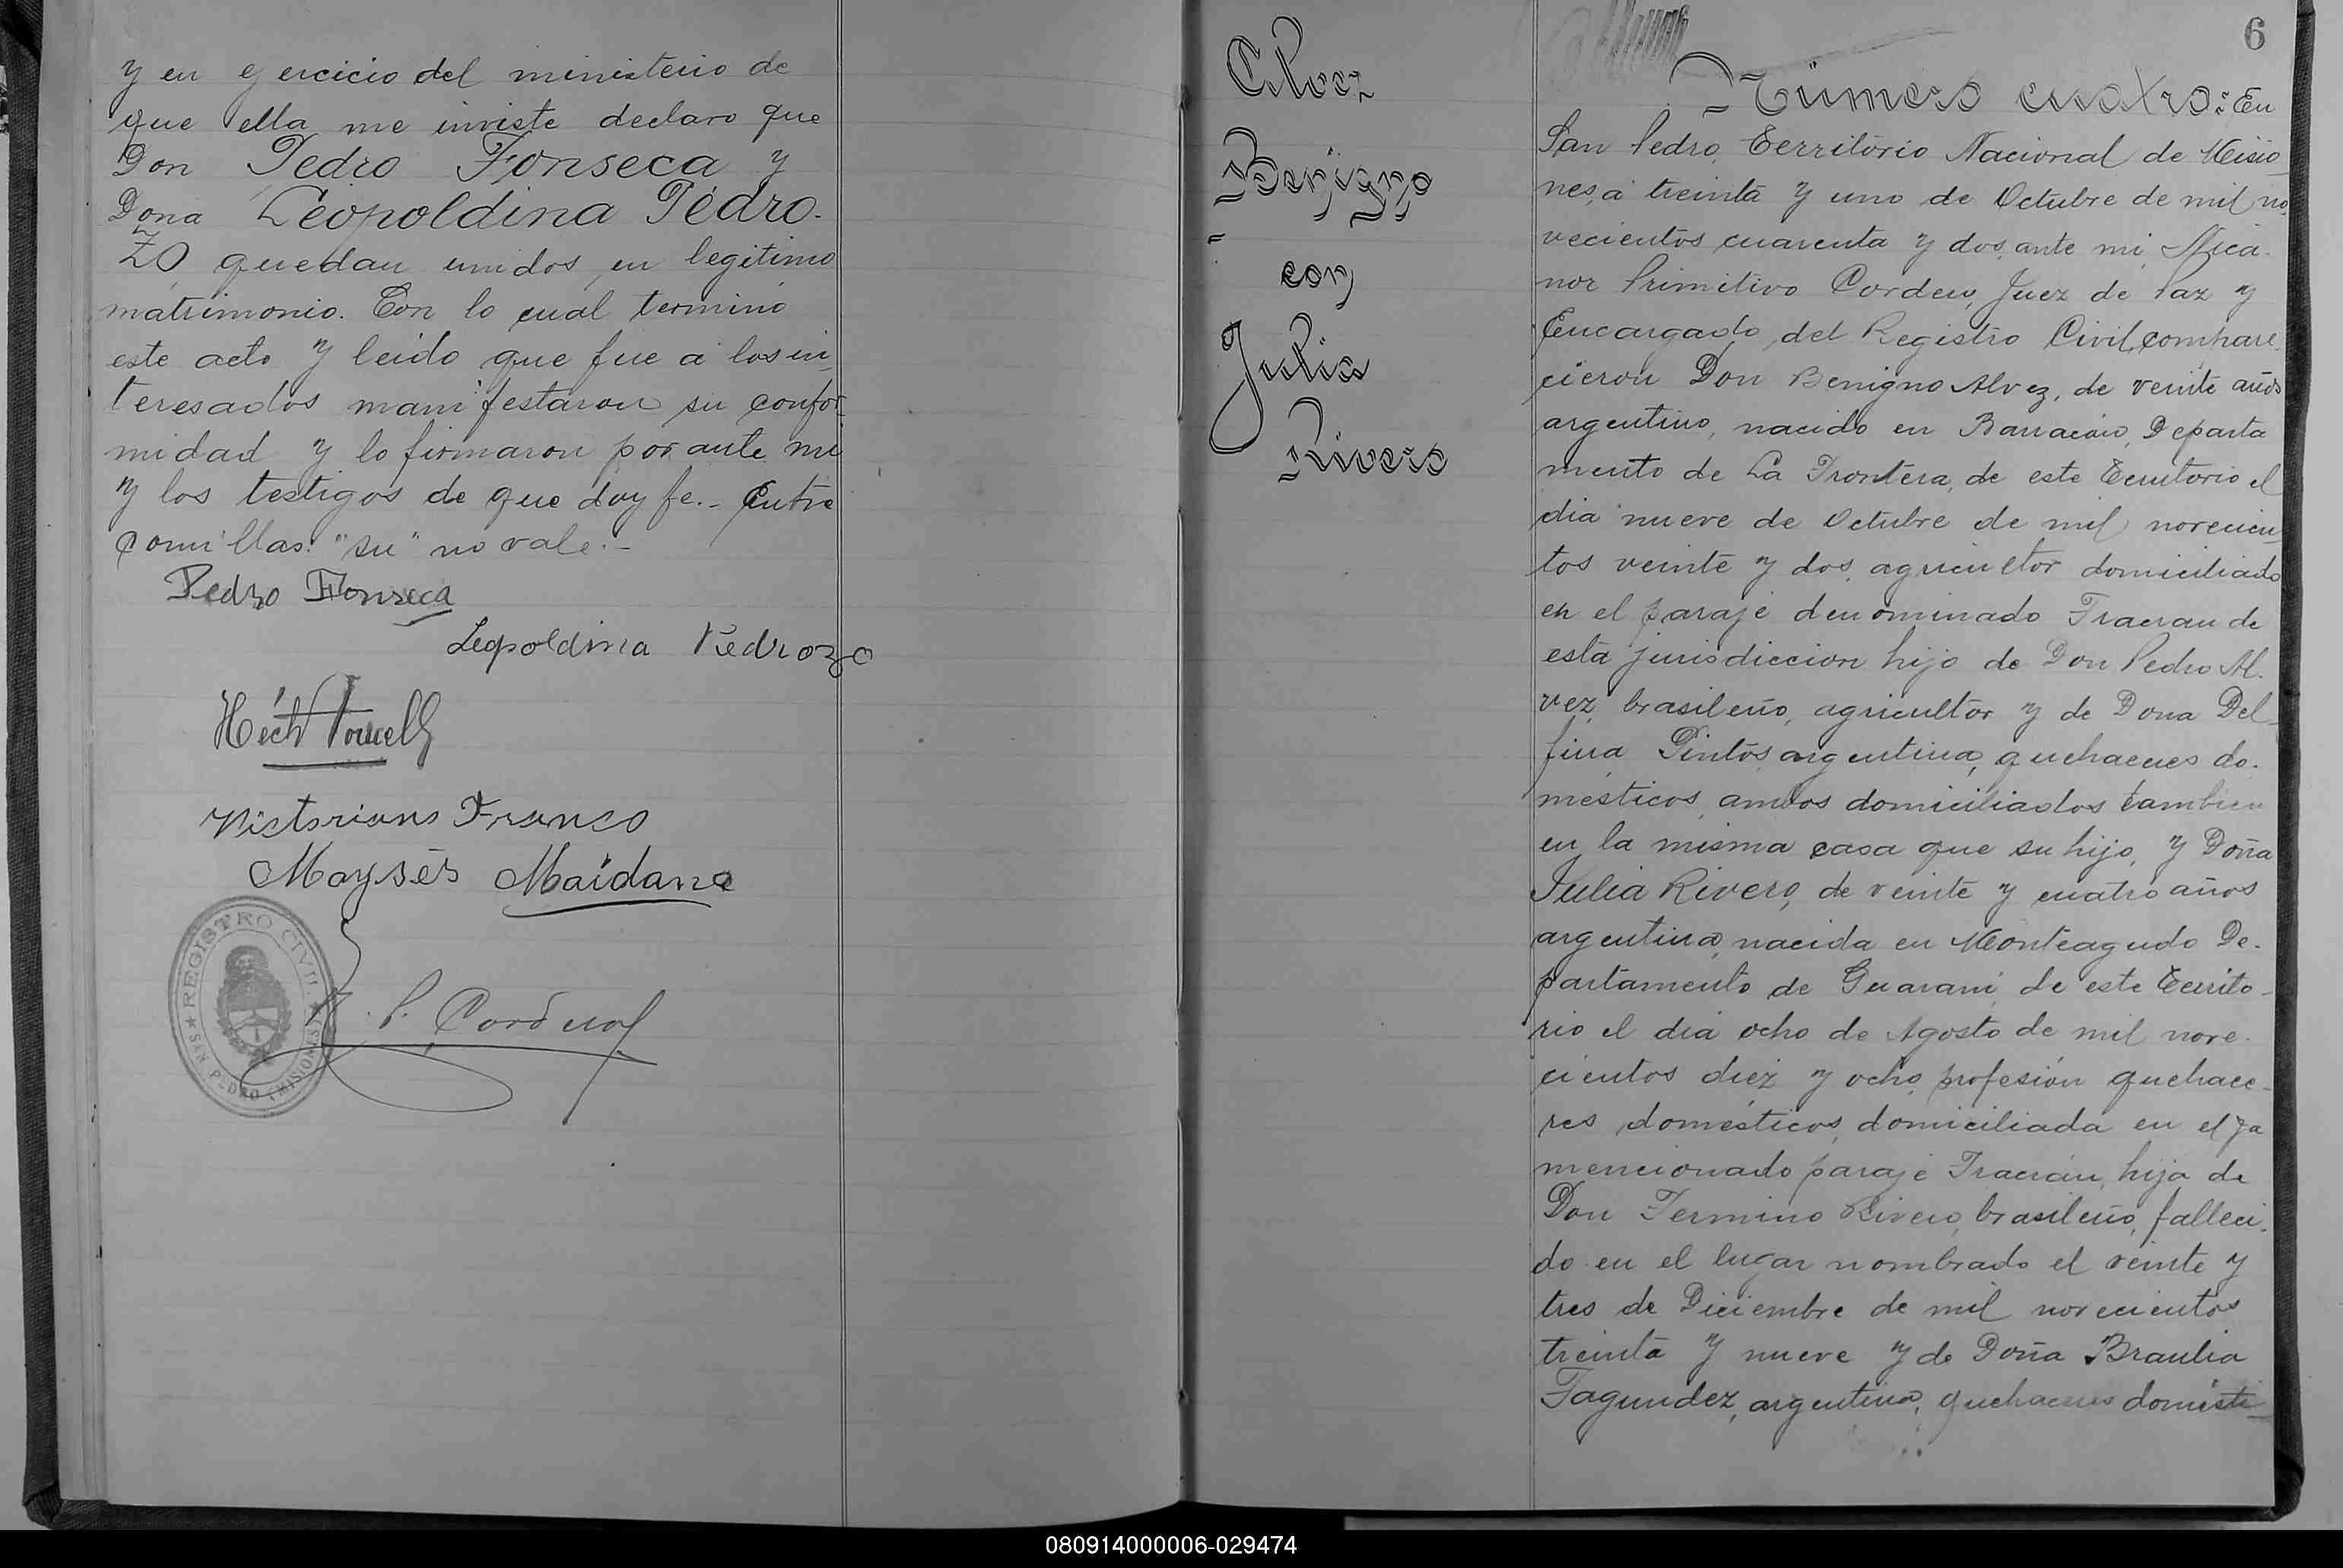 y en ejercicio del ministerio de
que ella me inviste declaro que
Don Pedro Fonseca y
Dona Leopoldina Pedro-
zo quedan unidos en legitimo
matrimonio. Con lo cual terminó
este acto y leido que fue a los in
teresados manifestaron su confor
midad y lo firmaron por ante mi
y los testigos de que doy fe.- Entre
comillas: "su" no vale.-
Pedro Fonseca
Leopoldina Pedrozo
Victoriano Franco
Moysés Maidana
REGISTRO CIVIL
SAN PEDRO (MISIONES)
N. P. Cordero
6
Alvez
Benigno
con
Julia
Rivero
Número cuatro: En
San Pedro, Territorio Nacional de Misio
nes, a treinta y uno de Octubre de mil no
vecientos cuarenta y dos, ante mi, Nica-
nor Primitivo Cordero, Juez de Paz y
Encargado del Registro Civil, compare
cieron Don Benigno Alvez, de veinte años
argentino, nacido en Barracón, Departa
mento de La Frontera, de este Territorio el
dia nueve de Octubre de mil novecien
tos veinte y dos, agricultor domiciliado
en el paraje denominado Tracran de
esta jurisdiccion hijo de Don Pedro Al-
vez, brasileño, agricultor y de Dona Del-
fina Pintos, argentina, quehaceres do-
mésticos, ambos domiciliados tambien
en la misma casa que su hijo, y Doña
Julia Rivero, de veinte y cuatro años
argentina, nacida en Monteagudo De-
partamento de Guarani de este Territo-
rio el dia ocho de Agosto de mil nove-
cientos diez y ocho, profesión quehace-
res domésticos, domiciliada en el ya
mencionado paraje Tracrán, hija de
Don Fermino Rivero, brasileño, falleci-
do en el lugar nombrado el veinte y
tres de Diciembre de mil novecientos
treinta y nueve y de Doña Braulia
Fagundez, argentina, quehaceres domésti-
080914000006-029474